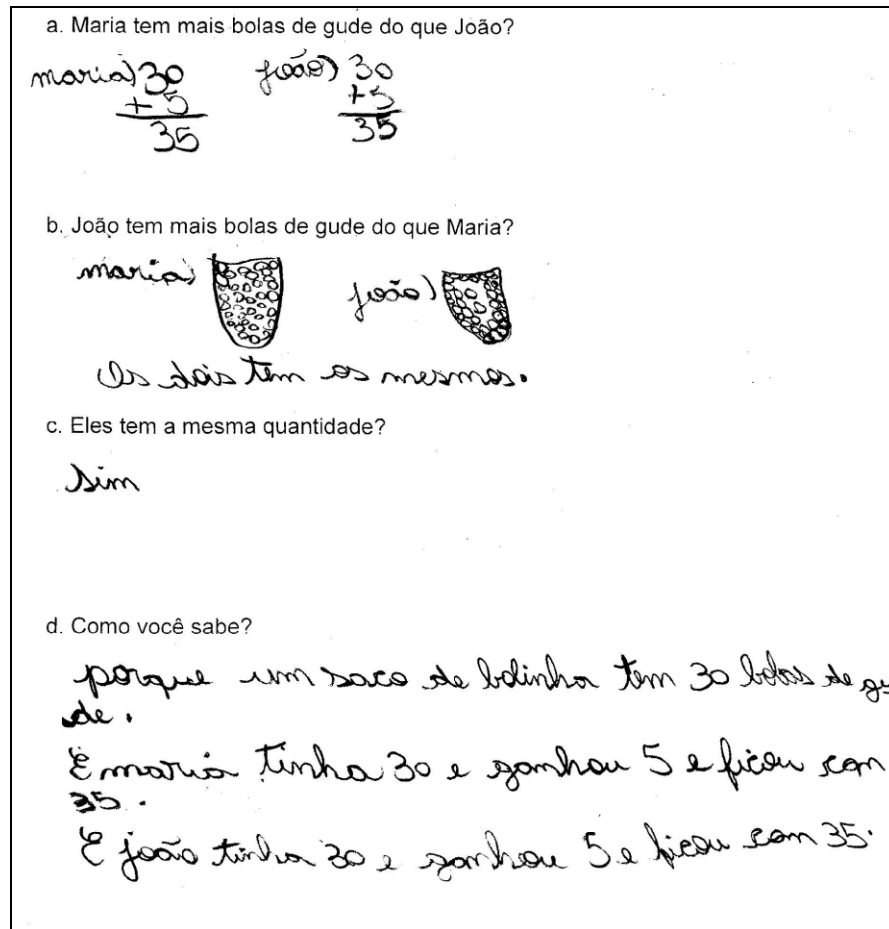 a. Maria tem mais bolas de gude do que João?
maria) 30 joão) 30
+ 5 +5
35 35
b. João tem mais bolas de gude do que Maria?
maria) joão)
Os dois tem os mesmos.
c. Eles tem a mesma quantidade?
sim
d. Como você sabe?
porque um saco de bolinha tem 30 bolas de gu
de.
E maria tinha 30 e ganhou 5 e ficou com
35.
E joão tinha 30 e ganhou 5 e ficou com 35.